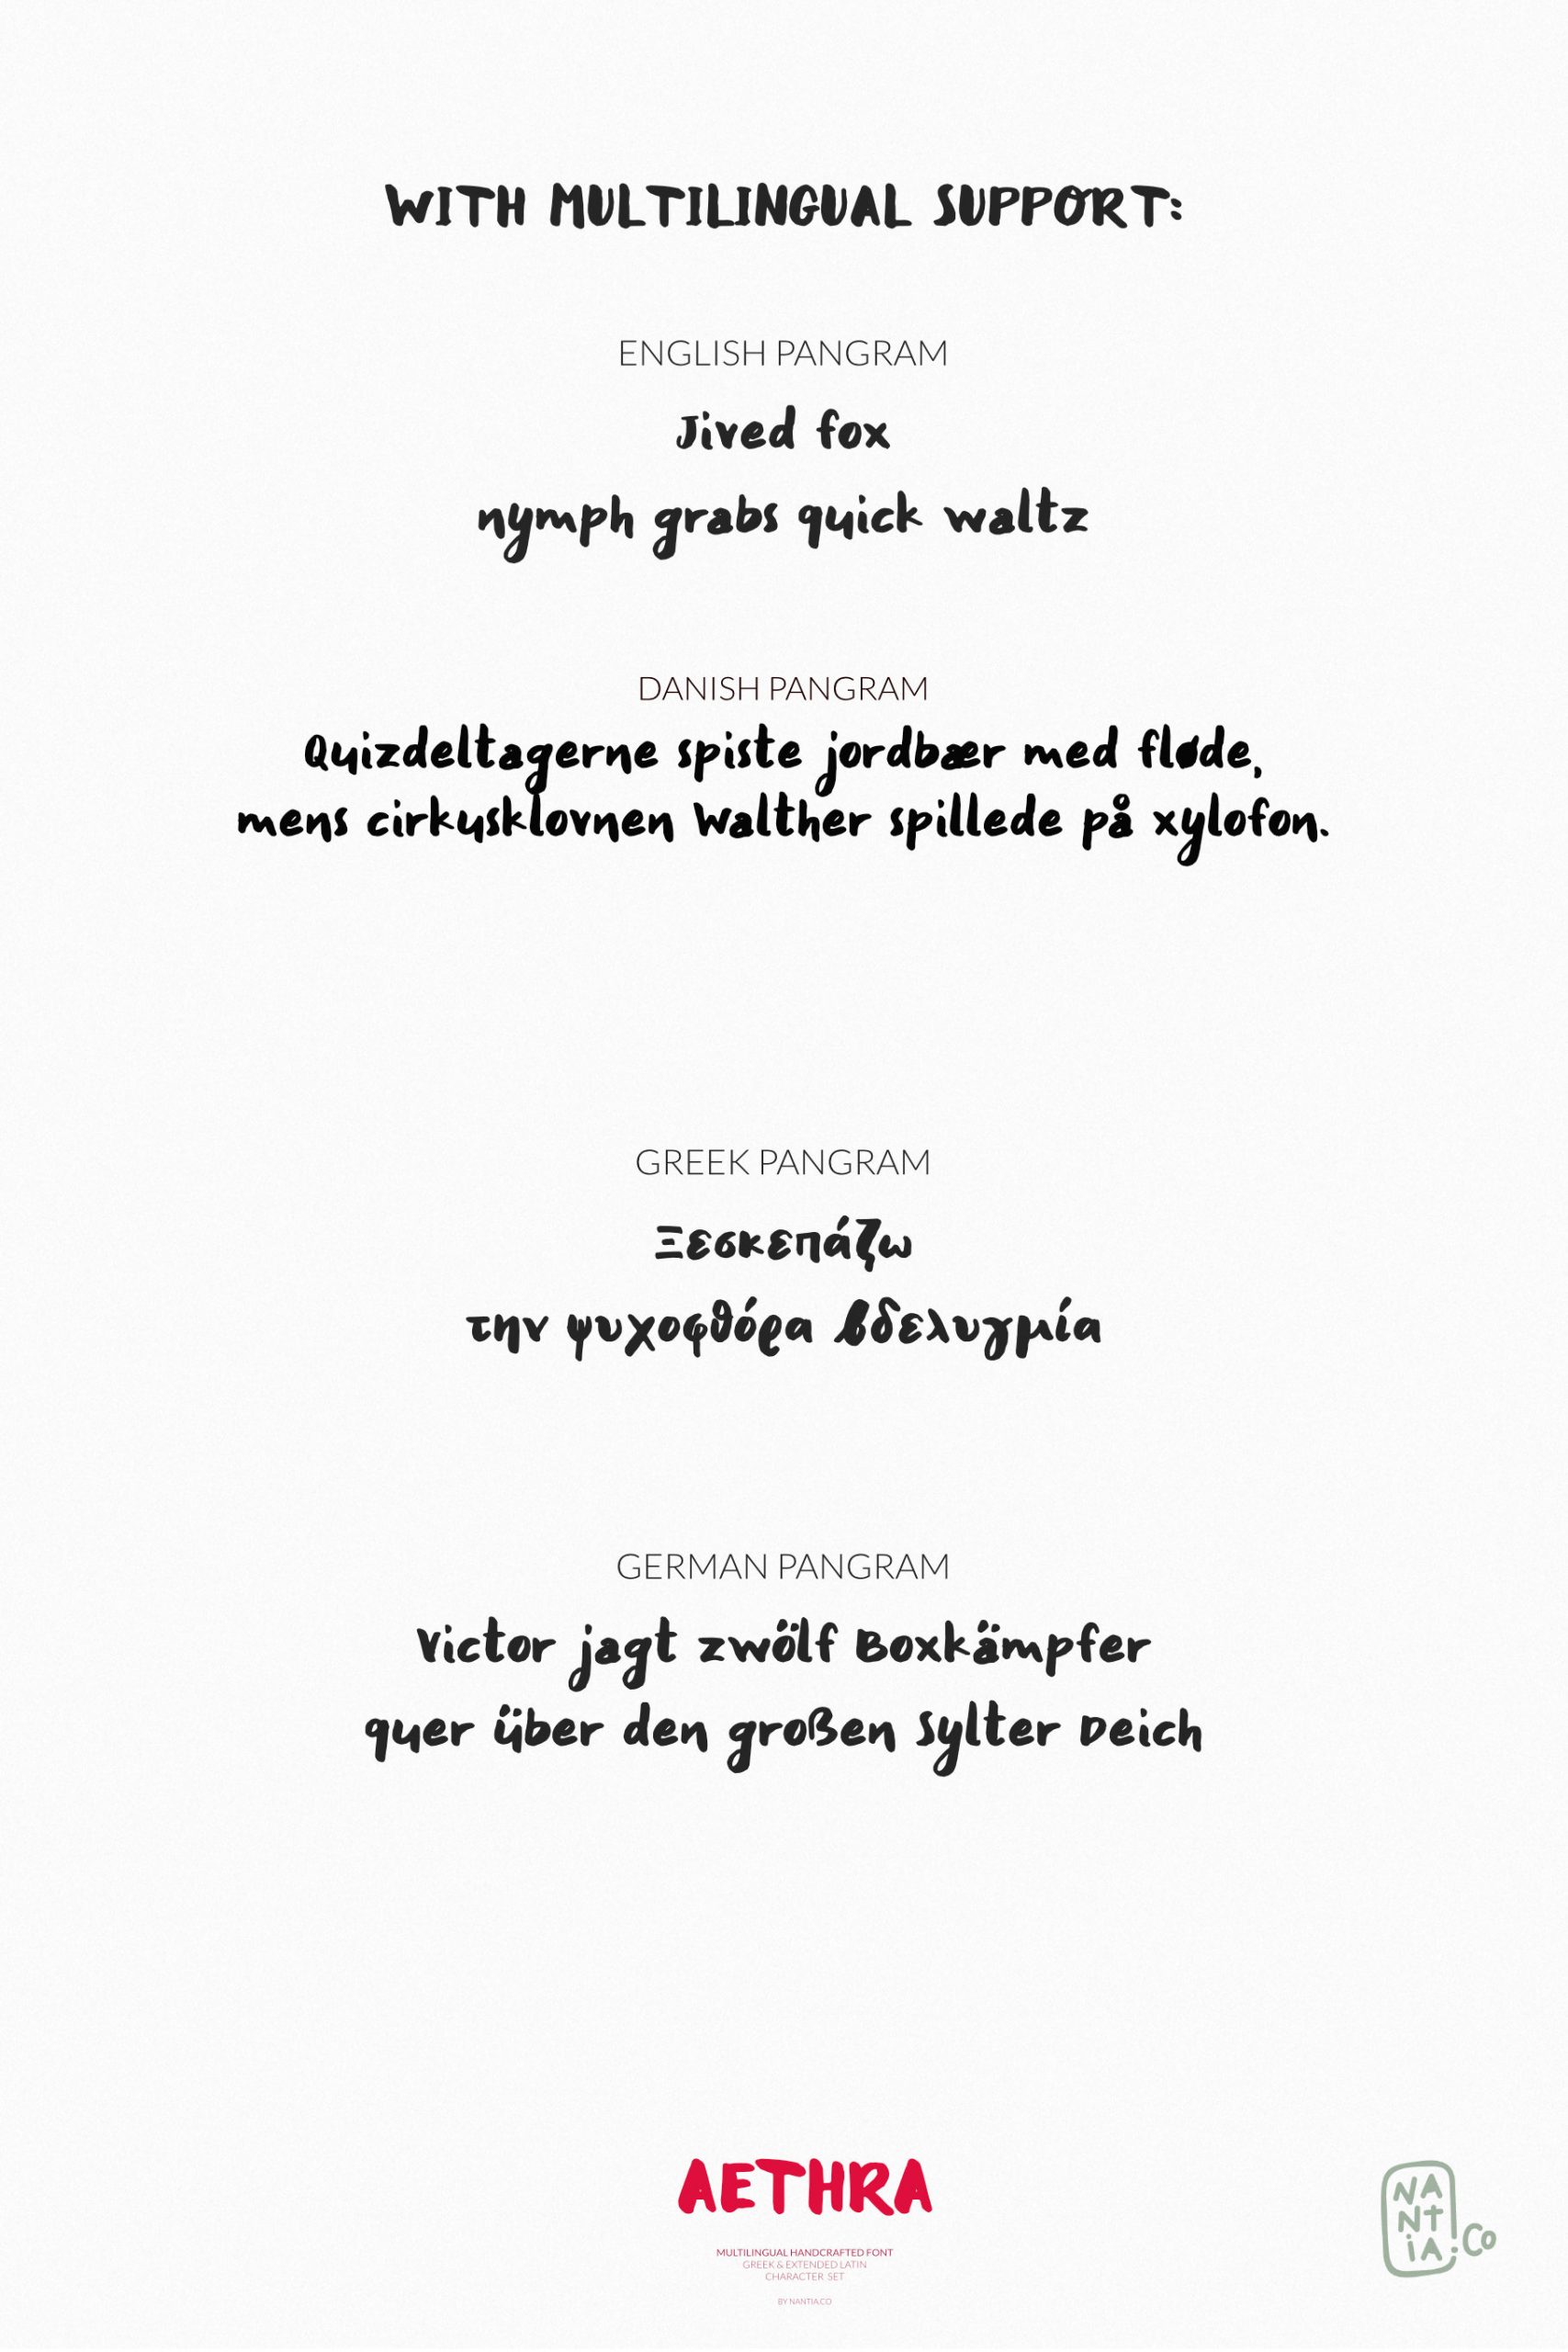 WITH MULTILINGUAL SUPPORT:
ENGLISH PANGRAM
Jived fox
nymph grabs quick waltz
DANISH PANGRAM
Quizdeltagerne spiste jordbær med fløde,
mens cirkusklovnen Walther spillede på xylofon.
GREEK PANGRAM
Ξεσκεπάζω
την ψυχοφθόρα βδελυγμία
GERMAN PANGRAM
Victor jagt zwölf Boxkämpfer
quer über den großen Sylter Deich
AETHRA
MULTILINGUAL HANDCRAFTED FONT
GREEK & EXTENDED LATIN
CHARACTER SET
BY NANTIA.CO
NA
NT
iA.Co